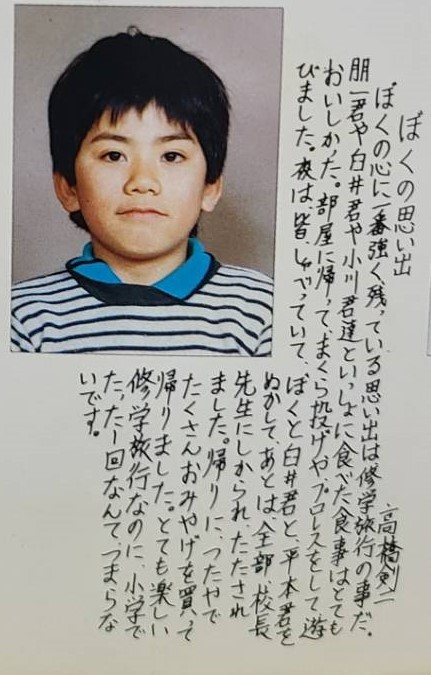 ぼくの思い出
高橋剣二
ぼくの心に一番強く残っている思い出は修学旅行の事だ。
朋一君や白井君や小川君達といっしょに食べた食事はとても
おいしかった。部屋に帰って、まくら投げや、プロレスをして遊
びました。夜は、皆、しゃべっていて、ぼくと白井君と、平本君を
ぬかして、あとは全部、校長
先生にしかられ、たたされ
ました。帰りに、つたやで
たくさんおみやげを買って
帰りました。とても楽しい
修学旅行なのに、小学で
たった一回なんて、つまらな
いです。